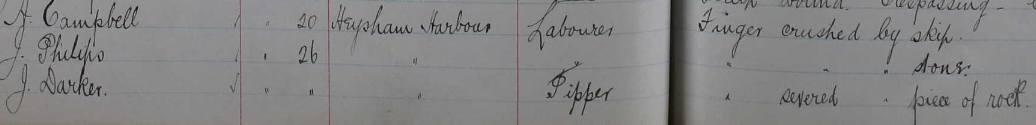 J. Campbell / " 20 Heysham Harbour Labourer Finger crushed by skip.
J. Philips / " 26 " " " " " stone.
J. Darker. √ " " " Tipper " severed " piece of rock.